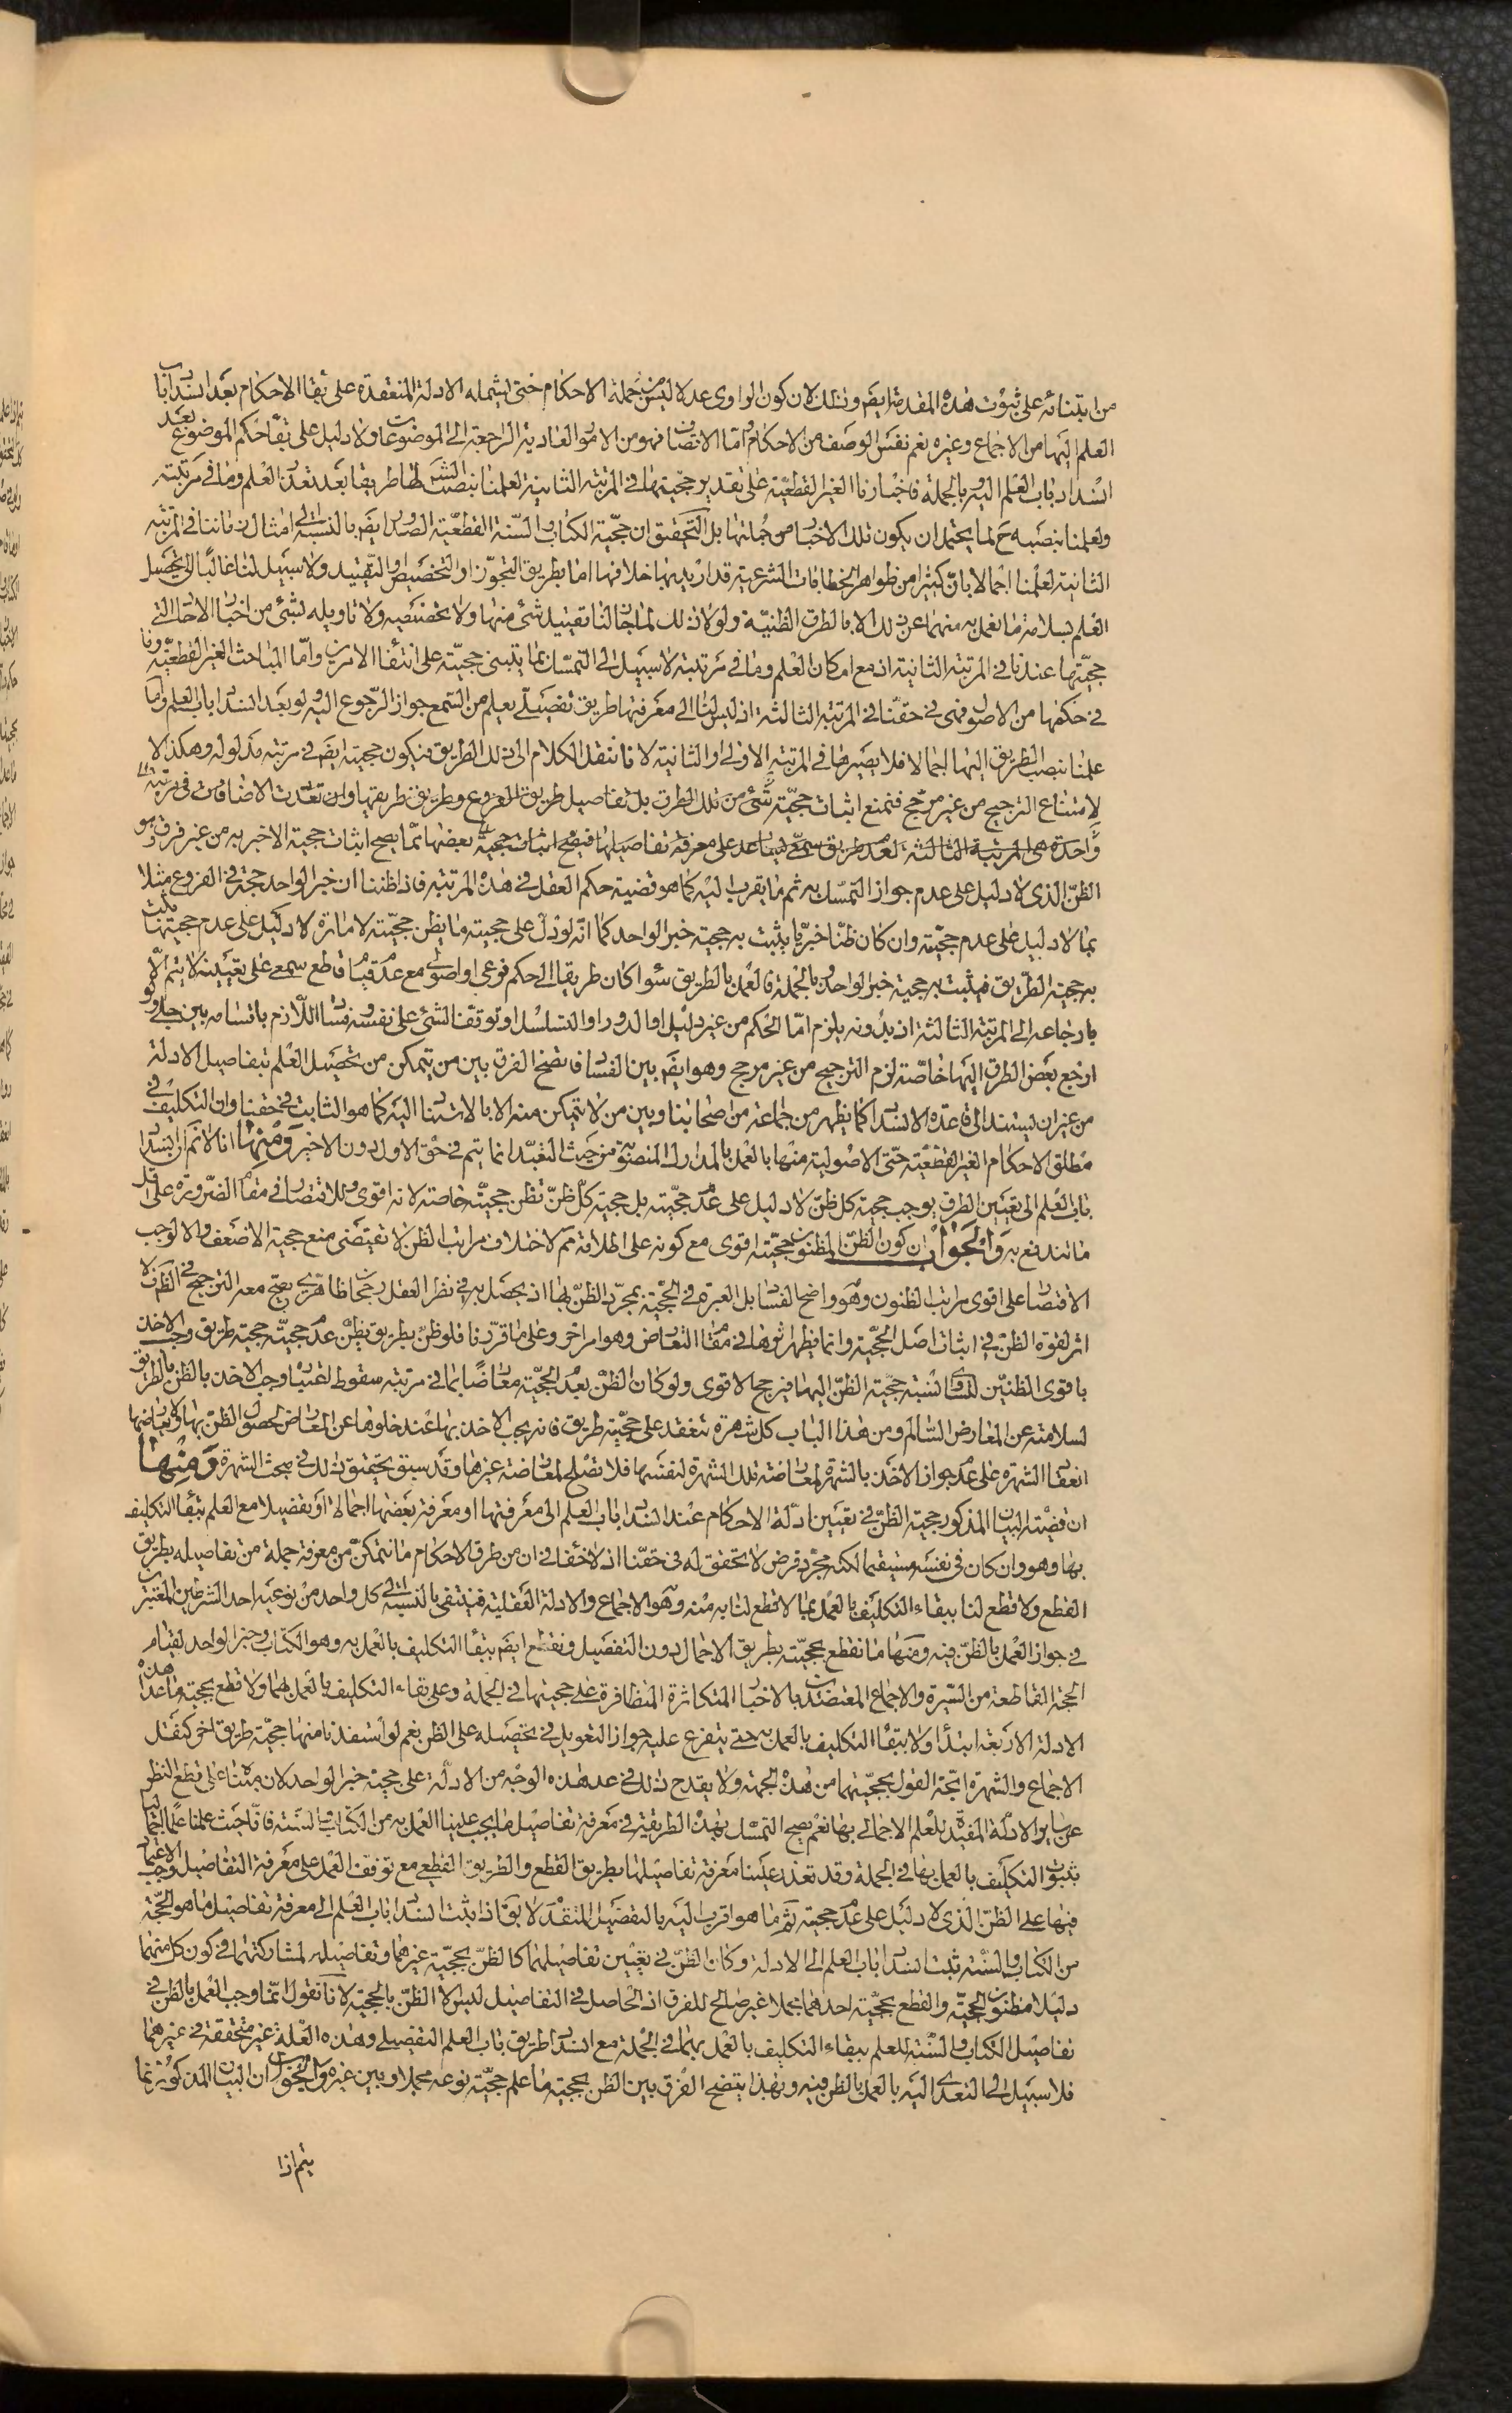 من ابتنائه على ثبوت هذه المقدمة ايضم وذلك لان كون الراوى عدلا ليس من جملة الاحكام حتى يشمله الادلة المنعقدة على بقاء الاحكام بعد انسداد باب
العلم اليها من الاجماع وغيره نعم نفس الوصف من الاحكام واما الاتصاف فهو من الامور العادية الراجعة الى الموضوعات ولا دليل على بقاء حكم الموضوع بعد
انسداد باب العلم اليه وبالجملة فاخبارنا الغير القطعية على تقدير حجيتها في المرتبة الثانية لعلمنا بنصب الشر لها طريقا بعد تعذر العلم وما في مرتبته
ولعلمنا بنصبه ح لما يحتمل ان يكون تلك الاخبار من جملتها بل التحقيق ان حجية الكتاب والسنة القطعية الصدور ايضم بالنسبة الى امثال زماننا في المرتبة
الثانية لعلمنا اجمالا بان كثيرا من ظواهر الخطابات الشرعية قد اريد بها خلافها اما بطريق التجوز او التخصيص او التقييد ولا سبيل لنا غالبا الى تحصيل
العلم بسلامة ما نعمل به منهما عن ذلك الا بالطرق الظنية ولولا ذلك لما جاز لنا تقييد شئ منها ولا تخصيصه ولا تاويله لشئ من اخبار الاحاد التى
حجيتها عندنا في المرتبة الثانية اذ مع امكان العلم وما في مرتبته لا سبيل الى التمسك بما يبتنى حجيته على انتفاء الامرين واما المباحث الغير القطعية وما
في حكمها من الاصول فهى في حقنا في المرتبة الثالثة اذ ليس لنا الى معرفتها طريق تفصيلى يعلم من السمع جواز الرجوع اليه ولو بعد انسداد باب العلم وما
علمنا بنصب الطريق اليها اجمالا فلا يصير ما في المرتبة الاولى او الثانية لانا ننقل الكلام الى ذلك الطريق فيكون حجيته ايضم في مرتبة مدلوله وهكذا لا
لامتناع الترجيح من غير مرجح فنمنع اثبات حجية شئ من تلك الطرق بل تفاصيل طريق الفروع وطريق طريقها وان تعددت الاضافات في مرتبة
واحدة هى المرتبة الثالثة لعدم طريق سمعى يساعد على معرفة تفاصيلها فيصح اثبات حجية بعضها بما يصح اثبات حجية الاخر به من غير فرق وهو
الظن الذى لا دليل على عدم جواز التمسك به ثم ما يقرب اليه كما هو قضية حكم العقل في هذه المرتبة فاذا ظننا ان خبر الواحد حجة في الفروع مثلا
بما لا دليل على عدم حجيته وان كان ظنا خبريا يثبت به حجية خبر الواحد كما انه لو دل على حجيته ما يظن حجيته لامارة لا دليل على عدم حجيتها يثبت
به حجية الطريق فيثبت به حجية خبر الواحد وبالجملة فالعمل بالطريق سواء كان طريقا الى حكم فرعى او اصولى مع عدم قيام قاطع سمعى على تعيينه لا يتم الا
بارجاعه الى المرتبة الثالثة اذ بدونه يلزم اما الحكم من غير دليل او الدور او التسلسل او توقف الشئ على نفسه وفساد اللازم باقسامه بين جلى ولو
ارجع بعض الطرق اليها خاصة لزم الترجيح من غير مرجح وهو ايضم بين الفساد فاتضح الفرق بين من يتمكن من تحصيل العلم بتفاصيل الادلة
من غير ان يستند الى قاعدة الانسداد كما يظهر من جماعة من اصحابنا وبين من لا يتمكن منه الا بالاستناد اليه كما هو الثابت في حقنا وان التكليف في
مطلق الاحكام الغير القطعية حتى الاصولية منها بالعمل بالمدارك المنصوبة من حيث التعبد انما يتم في حق الاول دون الاخير ومنها انا لا نم ان انسداد
باب العلم الى تعيين الطرق يوجب حجية كل ظن لا دليل على عدم حجيته بل حجية كل ظن نظن حجيته خاصة لانه اقوى وللاقتصار في مقام الضرورة على اقل
ما تندفع به والجواب ان كون الظن المظنون حجيته اقوى مع كونه على اطلاقه مم لاختلاف مراتب الظن لا تقتضى منع حجية الاضعف والا لوجب
الاقتصار على اقوى مراتب الظنون وهو واضح الفساد بل العبرة في الحجية بمجرد الظن بها اذ يحصل به في نظر العقل رجحانا ظاهرى يصح معه الترجيح في الظم فلا
اثر لقوة الظن في اثبات اصل الحجية وانما يظهر اثرها في مقام التعارض وهو امر اخر وعلى ما قررنا فلو ظن بطريق يظن عدم حجيته حجية طريق وجب الاخذ
باقوى الظنين لتساوى نسبة حجية الظن اليهما فيرجح الاقوى ولو كان الظن بعدم الحجية معارضا بما في مرتبته سقوط اعتباره وجب الاخذ بالظن بالطريق
لسلامته عن المعارض السالم ومن هذا الباب كل شهرة تنعقد على حجية طريق فانه يجب الاخذ بها عند خلوها عن المعارض لحصول الظن بها ولا يعارضها
انعقاد الشهرة على عدم جواز الاخذ بالشهرة لمعارضة تلك الشهرة لنفسها فلا تصلح لمعارضة غيرها وقد سبق تحقيق ذلك في مبحث الشهرة ومنها
ان قضية البيان المذكور حجية الظن في تعيين ادلة الاحكام عند انسداد باب العلم الى معرفتها او معرفة بعضها اجمالا او تفصيلا مع العلم ببقاء التكليف
بها وهو وان كان في نفسه مستقيما لكنه مجرد فرض لا تحقق له في حقنا اذ لا خفاء في ان من طرق الاحكام ما نتمكن من معرفة جملة من تفاصيله بطريق
القطع ولا قطع لنا ببقاء التكليف بالعمل بما لا قطع لنا به منه وهو الاجماع والادلة العقلية فينتفى بالنسبة الى كل واحد من نوعيه احد الشرطين المعتبرين
في جواز العمل بالظن فيه ومنها ما نقطع بحجيته بطريق الاجمال دون التفصيل ونقطع ايضم ببقاء التكليف بالعمل به وهو الكتاب وخبر الواحد لقيام
الحجة القاطعة من السيرة والاجماع المعتضدين بالاخبار المتكاثرة المتظافرة على حجيتها في الجملة وعلى بقاء التكليف بالعمل بهما ولا قطع بحجية ما عدا هذه
الادلة الاربعة ابتداء ولا ببقاء التكليف بالعمل به حتى يتفرع عليه جواز التعويل في تحصيله على الظن نعم لو استفدنا منها حجية طريق اخر كنقل
الاجماع والشهرة اتجه القول بحجيتهما من هذه الجهة ولا يقدح ذلك في عد هذه الوجه من الادلة على حجية خبر الواحد لان مبناه على قطع النظر
عن ساير الادلة المفيدة للعلم الاجمالى بها نعم يصح التمسك بهذه الطريقة في معرفة تفاصيل ما يجب علينا العمل به من الكتاب والسنة فانا حيث علمنا علما اجماليا
بثبوت التكليف بالعمل بها في الجملة وقد تعذر علينا معرفة تفاصيلها بطريق القطع والطريق القطعى مع توقف العمل على معرفة التفاصيل وجب الاعتماد
فيها على الظن الذى لا دليل على عدم حجيته ثم ما هو اقرب اليه بالتفصيل المتقدم لا يقم اذا ثبت انسداد باب العلم الى معرفة تفاصيل ما هو الحجة
من الكتاب والسنة ثبت انسداد باب العلم الى الادلة وكان الظن في تعيين تفاصيلهما كالظن بحجية غيرهما وتفاصيله لمشاركتهما في كون كل منهما
دليلا مظنون الحجية والقطع بحجية احدهما مجملا غير صالح للفرق اذ الحاصل في التفاصيل ليس الا الظن بالحجية لانا نقول انما وجب العمل بالظن في
تفاصيل الكتاب والسنة للعلم ببقاء التكليف بالعمل بهما في الجملة مع انسداد طريق باب العلم التفصيلى وهذه العلة غير متحققة في غيرهما
فلا سبيل الى التعدى اليه بالعمل بالظن فيه وبهذا يتضح الفرق بين الظن بحجية ما علم حجية نوعه مجملا وبين غيره والجواب ان البيان المذكور انما
يتم اذا